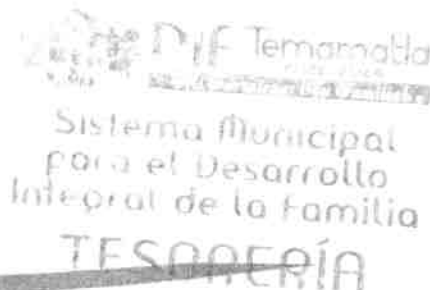 DIF Temamatla
Sistema Municipal
para el Desarrollo
Integral de la Familia
TESORERÍA